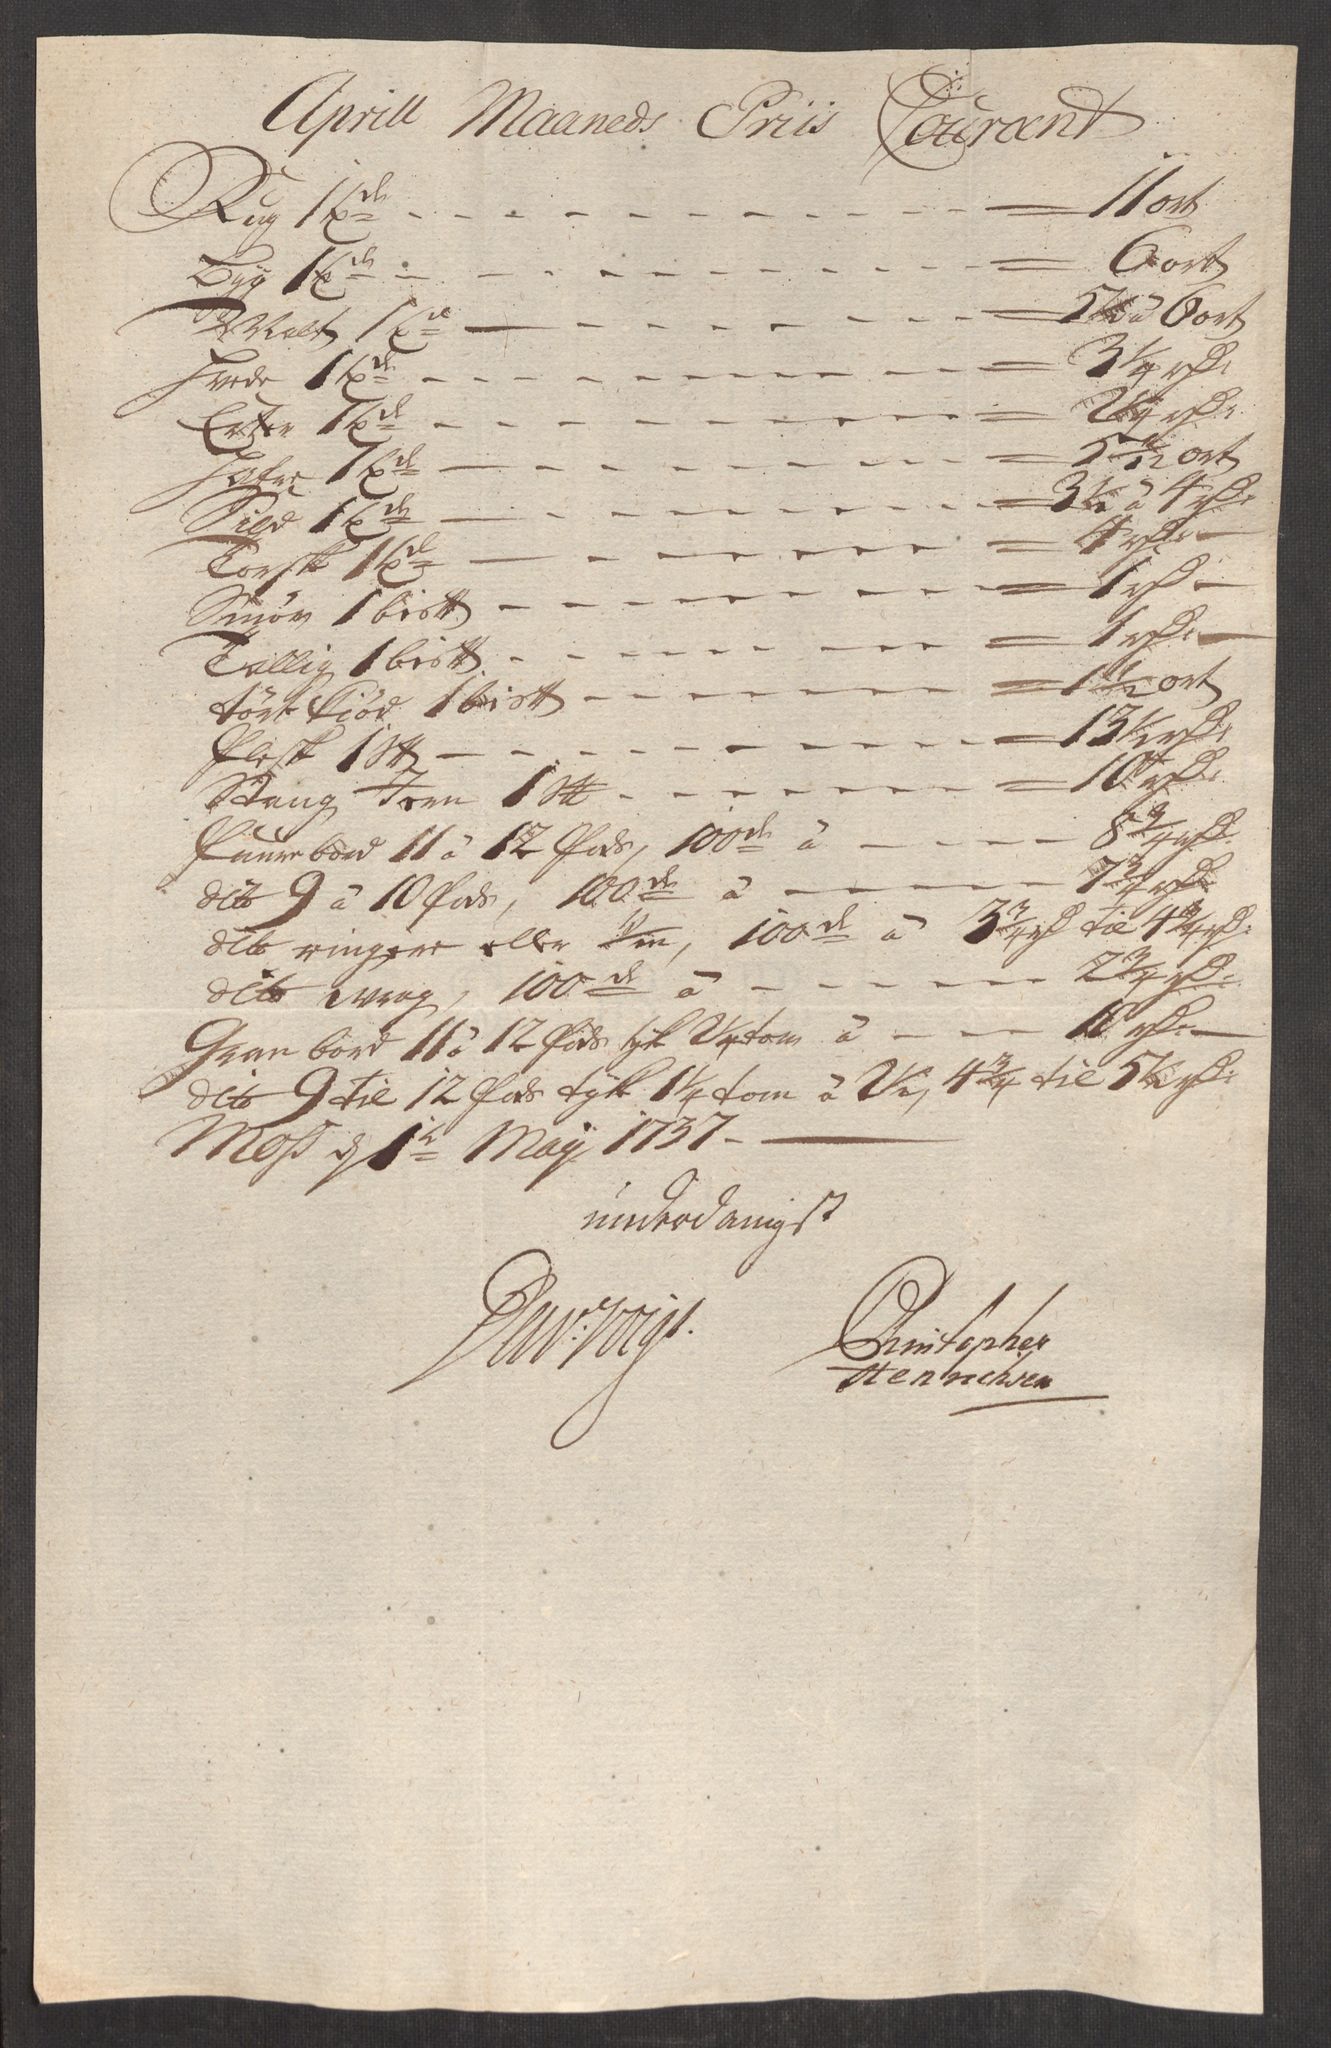 Aprill Maaneds Priis Courant
Rug 1 td - - - 11 ort
Byg 1 td - - - 6 ort
Malt 1 td - - - 5½ â 6 ort
Hvede 1 td - - - 3¼ rd:
Erter 1 td - - - rd:
Hafre 1 td - - - 5½ ort
Sild 1 td - - - 3½ â 4 rd:
Torsk 1 td - - - 4 rd:
Smör 1 bistt - - - 1 rd:
Tallig 1 bistt - - - 1 rd:
tört Kiöd 1 bistt - - - 1½ ort
Flesk 1 stt - - - 13½ rd:
Stang Jern 1 stt - - - 10 rd:
Fuure bord 11 â 12 fods, 100de â - - - 8¾ rd:
dito 9 â 10 fods, 100de â - - - 7¾ rd:
dito ringere eller, 100de â 3¾ rd til 4¾ rd:
dito wrag, 100de â - - - 2¾ rd:
Gran bord 11 â 12 fods tyk tom â - - - rd:
dito 9 til 12 fods tyk 1¼ tom â, 4¾ til 5½ rd:
Moss d 1te Maij 1737
underdanigst
Dav: Voigt. Christopher
Henrichsen